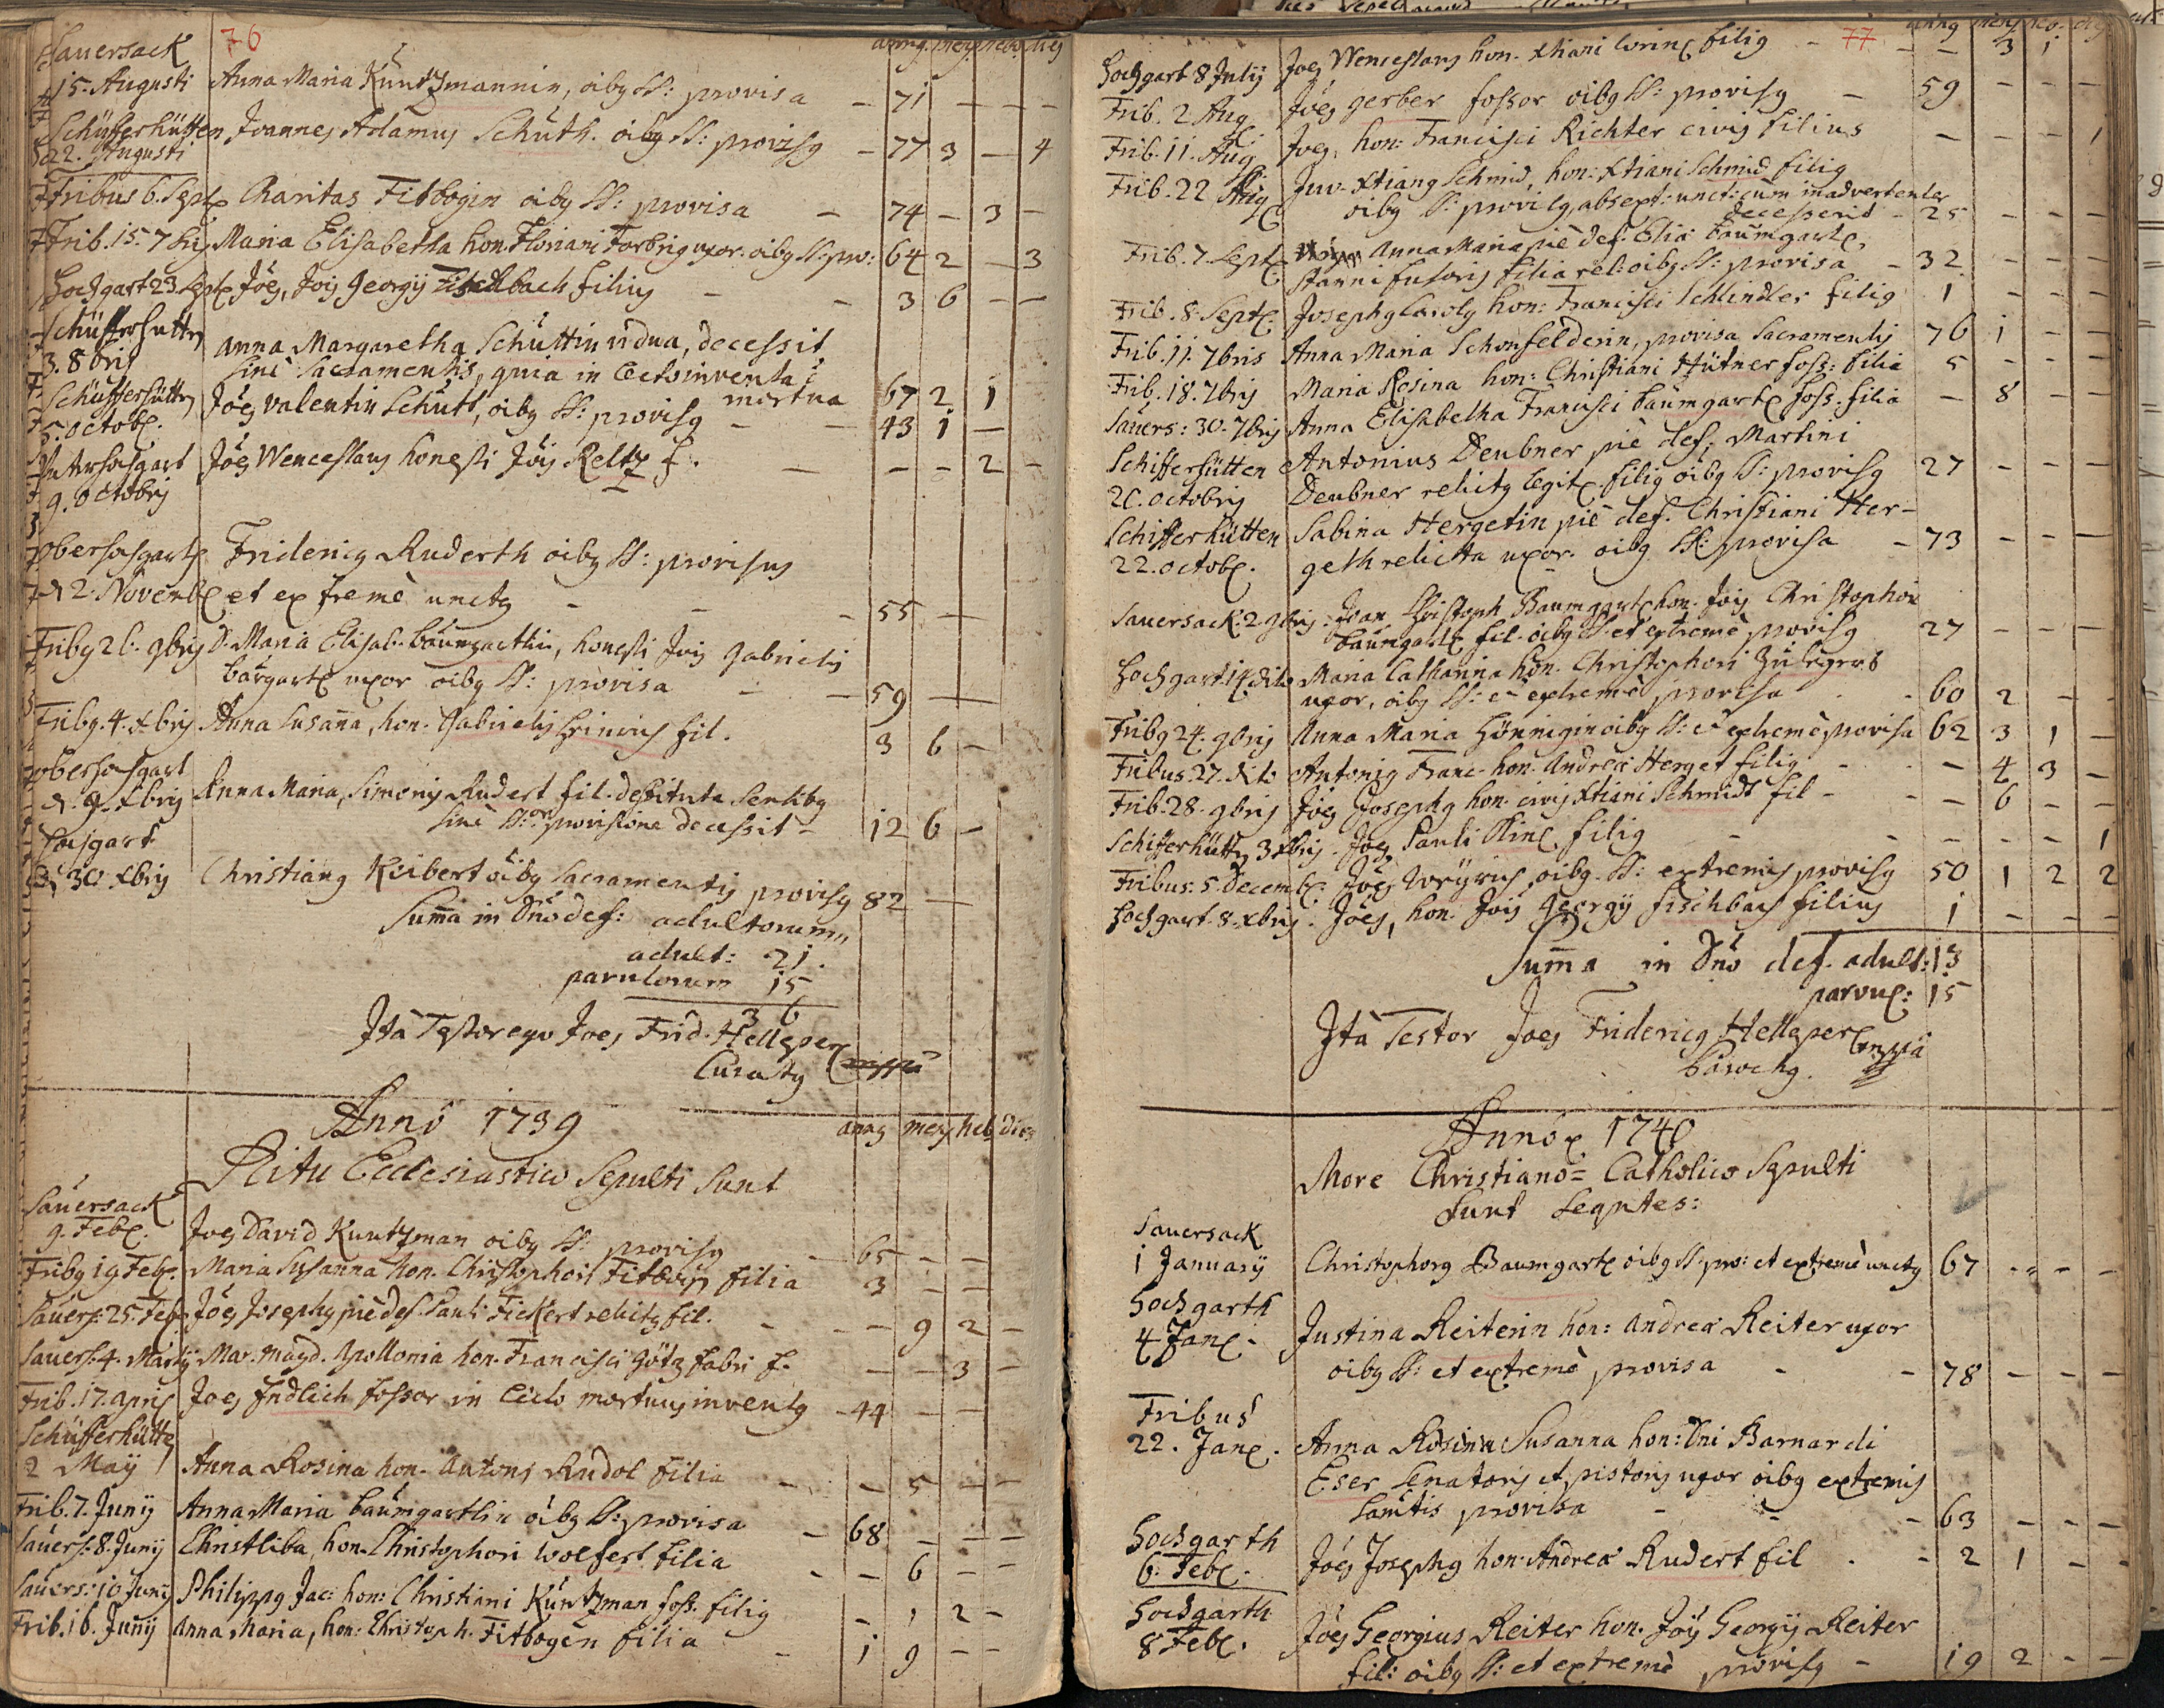 76
Sauersack annꝯ mens hebd dies
15. Augusti Anna Maria Kuntzmannin, oibꝯ SS: provisa - 71 - - -
Schüfferhütten Joannes Adamus Schüth. oibꝯ SS: provisꝯ - 77 3 - 4
22. Augusti
Fribus 6. Sept. Charitas Fitbogin oibꝯ SS: provisa - 74 - 3 -
Frib. 15. 7bris Maria Elisabetha hon. Floriani Forbrig uxor. oibꝯ SS: pro: 64 2 - 3
Hochgart 23 Sept. Joes, Jois Georgij Fischbach filius - - 3 6 - -
Schüfferhütt
3. 8bris Anna Margaretha Schüttin vidua, decessit
sine Sacramentis, quia in lecto inventa
mortua 67 2 1
Schüfferhütt Joes Valentin Schütt, oibꝯ SS: provisꝯ - - 43 1 -
5. Octob.
Joes Wenceslaus honesti Jois Reltz f. - - - 2 -
9. Octobris
Oberhochgart Fridericꝯ Ruderth oibꝯ SS: provisus
d 2. Novemb et extremè unctꝯ - - - 55 -
Fribꝯ 26. 9bris D. Maria Elisab. Baumgartlin, honesti Jois Gabrielis
Baumgart uxor oibꝯ SS: provisa - - 59 -
Fribꝯ. 4. xbris Anna Susana, hon. Gabrielis fil. 3 6 -
Oberhochgart
d. 9. xbris Anna Maria, Simonis Rudert fil. destituta sensibꝯ
sine SS: provisione decessit - 12 6 -
Hochgart
d 30 xbris Christianꝯ Keibert oibꝯ Sacramentis provisꝯ 82 -
Suma in Dno def: adultorum
adult: 21.
parvulorum 15
36
Ita Testor ego Joes Frid. Hellꝯper
Curatꝯ mppa
Anno 1739
annꝯ mens heb dies
Ritu Ecclesiastico Sepulti Sunt
Sauersack
9. Feb. Joes David Kuntzman oibꝯ SS: provisꝯ - 65 - -
Fribꝯ 19 Feb. Maria Susanna hon. Christophori Fitbogn filia 3 - -
Sauers: 25. Feb. Joes Josephꝯ pie def. Pauli Fickert relictꝯ fil. - - - 9 2 -
Sauers. 4. Martij Mar. Magd. Apollonia hon. Francisci Götz fabri f. - - 3 -
Frib. 17. Apris Joes Endlich fossor in lecto mortuus inventꝯ - 44 - -
Schüfferhütte
2 Maij Anna Rosina hon. Antonj Rudol filia - - 5 - -
Frib. 7. Junij Anna Maria Baumgartlin oibꝯ SS: provisa - 68 - - -
Sauers: 8. Junij Christliba, hon. Christophori Wolfert filia - - 6 - -
Sauers: 10 Junij Philippꝯ Jac: hon: Christiani Kuntzman foss. filiꝯ - 1 2 -
Frib. 16. Junij Anna Maria, hon. Christoph. Fitbogen filia - 1 9 - -
77
annꝯ mens heb. dies
Hochgart 8 Julij Joes Wenceslaus hon. Xtiani Lorinc filiꝯ - - - 3 1
Frib. 2 Aug Joes Gerber fossor oibꝯ SS: provisꝯ - 59 - - -
Frib. 11. Aug Joes, hon: Francisci Richter civis filius - - - 1
Frib. 22 Aug Juv. Xtianꝯ Schmid, hon: Xtiani Schmid filiꝯ
oibꝯ SS: provisꝯ, absq. ext: unct: cum inadvertenter
decesserit - 25 - - -
Frib. 7. Sept. Anna Maria pie def. Elia Baumgart,
stanni fusoris filia rel: oibꝯ SS: provisa - 32 - - -
Frib. 8. Sept. Josephꝯ Carolꝯ hon: Francisci Schindler filiꝯ 1 - - -
Frib. 11. 7bris Anna Maria Schonfelderin, provisa Sacramentis 76 1 - -
Frib. 18. 7bris Maria Rosina hon: Christiani Hütner foss: filia 5 - - -
Sauers: 30. 7bris Anna Elisabetha Francisci Baumgart foss. filia - 8 - -
Schifferhütten Antonius Deubner pie def: Martini
20. Octobris Deubner relictꝯ legit. filiꝯ oibꝯ SS: provisꝯ 27 - - -
Schifferhütten Sabina Hergetin pie def. Christiani Her-
22. Octob. geth relicta uxor. oibꝯ SS: provisa - 73 - - -
Sauersack. 2 9bris. Joan Christoph Baumgart hon. Jois Christophori
Baumgart fil. oibꝯ SS. et extreme provisꝯ 27 - - -
Hochgart 14 dito Maria Catharina hon. Christophori
uxor, oibꝯ SS: e extreme provisa - - 60 2 - -
Fribꝯ 24. 9bris Anna Maria Hönnigin oibꝯ SS: e extremè provisa 62 3 1 -
Fribus. 27. dito Antoniꝯ Franc. hon. Andreæ Herget filiꝯ - - - 4 3 -
Frib. 28. 9bris Joes Josephꝯ hon. civis Xtiani Schmidt fil - - - 6 - -
Schifferhütt 3 xbris. Joes Pauli filiꝯ - - - - - 1
Fribus: 5. Decemb. Joes oibꝯ. SS: extremis provisꝯ 50 1 2 2
Hochgart. 8. xbris. Joes, hon. Jois Georgij Fischbach filius 1 - - -
Suma in Dno def. adult: 13
parvul: 15
Ita Testor Joes Fridericꝯ Hellꝯper mppa
Parochꝯ.
Anno 1740
More Christiano = Catholico Sepulti
Sunt Seqntes:
Sauersack
1 Januarij Christophorꝯ Baumgart oibꝯ SS: pro: et extremè unctꝯ 67 - - -
Hochgarth
4 Jan. Justina Reiterin hon: Andreæ Reiter uxor
oibꝯ SS: et extremè provisa - - 78 - - -
Fribus
22. Jan. Anna Rosina Susanna hon: Dni Barnardi
Eser Senatoris et pistoris uxor oibꝯ extremis
Samtis provisa - - - 63 - - -
Hochgarth
6. Feb. Joes Josephꝯ hon: Andreæ Rudert fil . - 2 1 - -
Hochgarth
8 Feb. Joes Georgius Reiter hon. Jois Georgij Reiter
fil: oibꝯ SS: et extremè provisꝯ - 19 2 - -